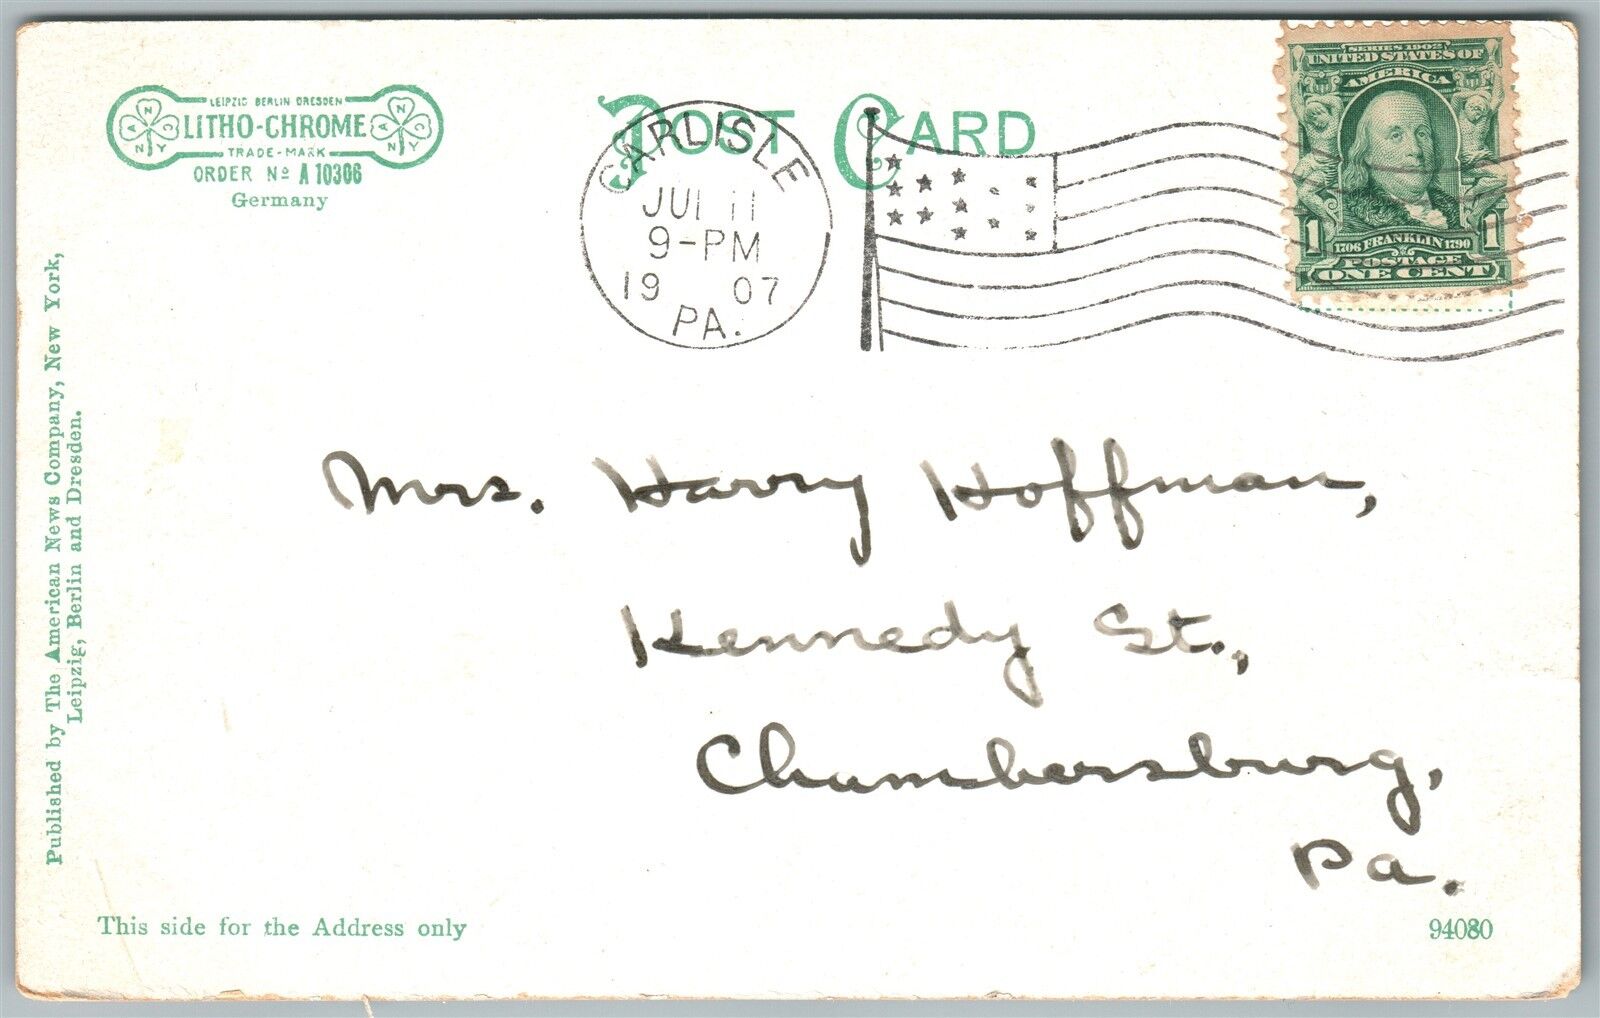 LEIPZIG BERLIN DRESDEN
LITHO-CHROME
TRADE-MARK
ORDER Nº A 10306
Germany
A N C N Y
A N C N Y
POST CARD
CARLISLE
JUL 11
9-PM
19 07
PA.
SERIES 1902
UNITED STATES OF
AMERICA
1 1
1706 FRANKLIN 1790
POSTAGE
ONE CENT
Published by The American News Company, New York,
Leipzig, Berlin and Dresden.
Mrs. Harry Hoffman,
Kennedy St.,
Chambersburg,
Pa.
This side for the Address only
94080